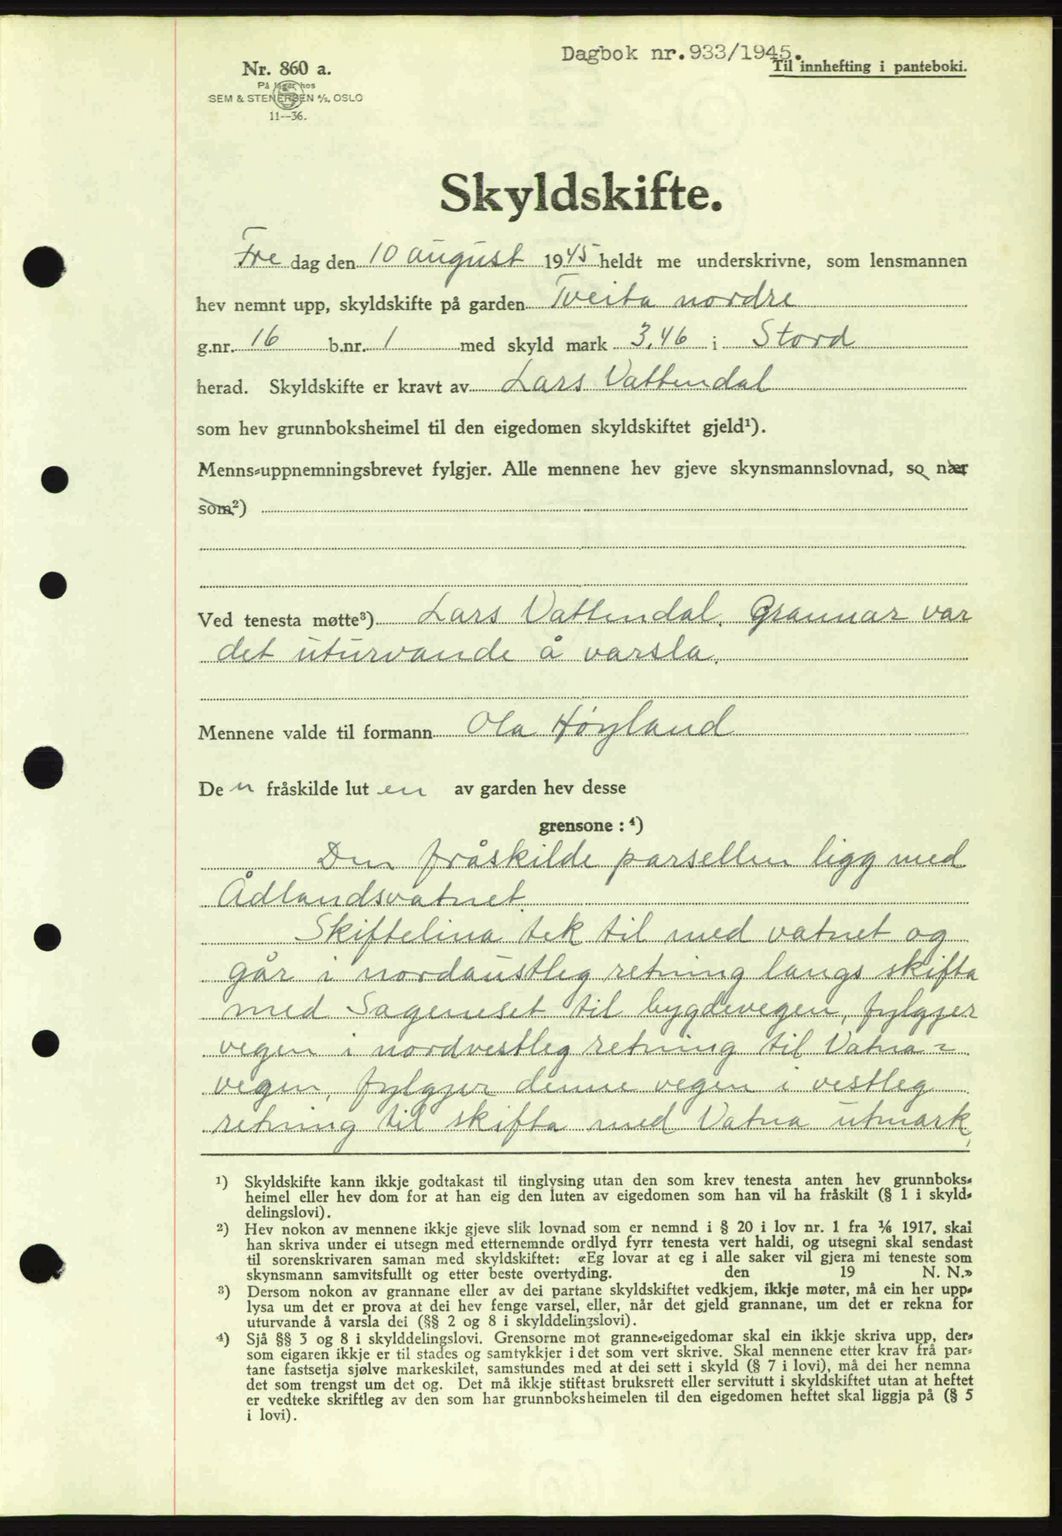 Dagbok nr. 933/1945.
Nr. 860 a.
Til innhefting i panteboki.
På lager hos
SEM & STENERSEN A/S, OSLO
11--36.
Skyldskifte.
Fre dag den 10 august 1945 heldt me underskrivne, som lensmannen
hev nemnt upp, skyldskifte på garden Tveita nordre
g.nr. 16 b.nr. 1 med skyld mark 3,46 i Stord
herad. Skyldskifte er kravt av Lars Vattendal
som hev grunnboksheimel til den eigedomen skyldskiftet gjeld¹).
Menns-uppnemningsbrevet fylgjer. Alle mennene hev gjeve skynsmannslovnad, so nær
som²)
Ved tenesta møtte³) Lars Vattendal. Grannar var
det uturvande å varsla.
Mennene valde til formann Ola Høyland
De n fråskilde lut en av garden hev desse
grensone : ⁴)
Den fråskilde parsellen ligg med
Ådlandsvatnet.
Skiftelina tek til med vatnet og
går i nordaustleg retning langs skifta
med Sageneset til bygdevegen, fylgjer
vegen i nordvestleg retning til Vatna=
vegen, fylgjer denne vegen i vestleg
retning til skifta med Vatna utmark,
¹) Skyldskifte kann ikkje godtakast til tinglysing utan den som krev tenesta anten hev grunnboks-
heimel eller hev dom for at han eig den luten av eigedomen som han vil ha fråskilt (§ 1 i skyld-
delingslovi).
²) Hev nokon av mennene ikkje gjeve slik lovnad som er nemnd i § 20 i lov nr. 1 fra ⅛ 1917, skal
han skriva under ei utsegn med etternemnde ordlyd fyrr tenesta vert haldi, og utsegni skal sendast
til sorenskrivaren saman med skyldskiftet: «Eg lovar at eg i alle saker vil gjera mi teneste som
skynsmann samvitsfullt og etter beste overtyding. den 19 N. N.»
³) Dersom nokon av grannane eller av dei partane skyldskiftet vedkjem, ikkje møter, må ein her upp-
lysa um det er prova at dei hev fenge varsel, eller, når det gjeld grannane, um det er rekna for
uturvande å varsla dei (§§ 2 og 8 i skylddelingslovi).
⁴) Sjå §§ 3 og 8 i skylddelingslovi. Grensorne mot granne-eigedomar skal ein ikkje skriva upp, der-
som eigaren ikkje er til stades og samtykkjer i det som vert skrive. Skal mennene etter krav frå par-
tane fastsetja sjølve markeskilet, samstundes med at dei sett i skyld (§ 7 i lovi), må dei her nemna
det som trengst um det og. Det må ikkje stiftast bruksrett eller servitutt i skyldskiftet utan at heftet
er vedteke skriftleg av den som har grunnboksheimelen til den eigedomen heftet skal liggja på (§ 5
i lovi).